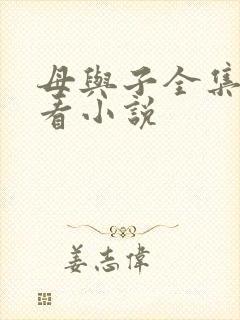 母與子全集
看小說
姜志偉